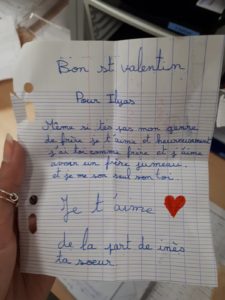 Bon st valentin
Pour Ilyas
Même si tes pas mon genre
de frère je t'aime et heureusement
j'ai toi comme frère et j'aime
avoir un frère jumeau.
et je me son seul son toi.
Je t'aime
de la part de inès
ta soeur.